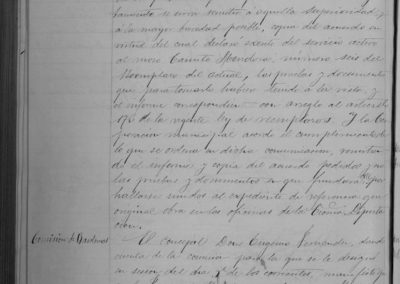 se sirva remitir á aquella Superioridad, y
á la mayor brevedad posible, copia del acuerdo en
virtud del cual declaró exento del servicio activo
al mozo Camilo Mendoza, número seis del
Reemplazo del actual, las pruebas y documentos
que para tomarle hubiere tenido á la vista, y
el informe correspondiente con arreglo al artículo
176 de la vigente ley de reemplazos. Y la Cor
poracion municipal acordó el cumplimiento de
lo que se ordena en dicha comunicacion, remitien
do el informe y copia del acuerdo pedidos y no
las pruebas y documentos en que fundara por
hallarse unidos al expediente de referencia que
original obra en las oficinas de la Diputa
cion.
Comisión de
El concejal Don Eugenio Fernandez, dando
cuenta de la comision para la que se le designó
en sesion del dia de los corrientes, manifestó